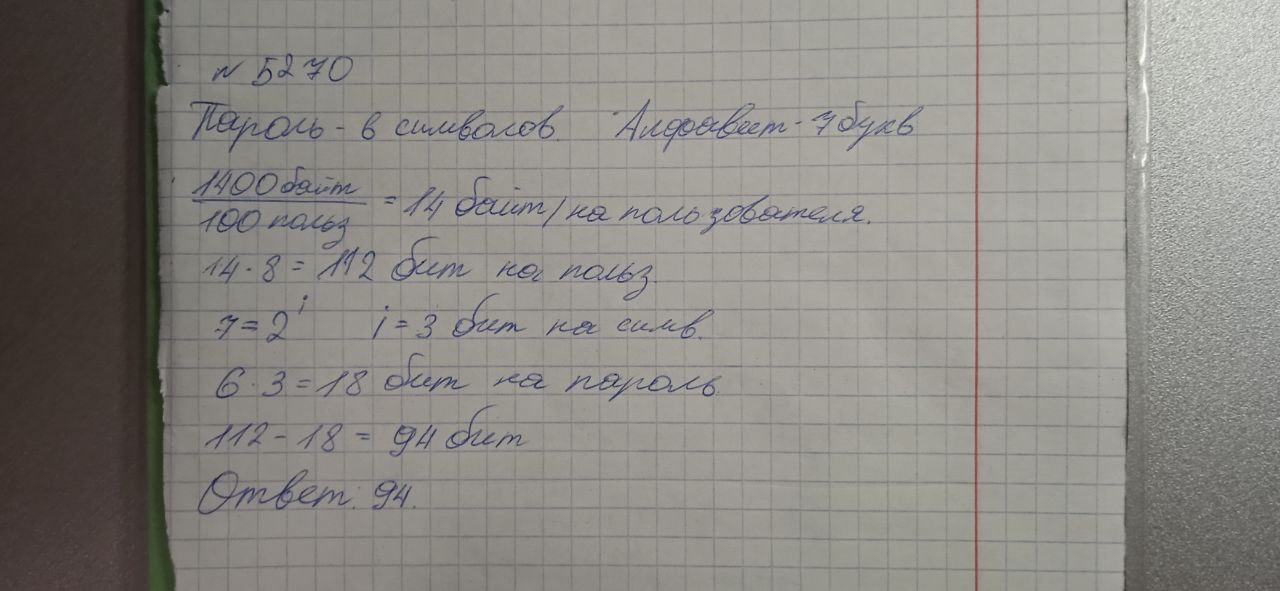 № 5270
Пароль - 6 символов. Алфавит - 7 букв
1400 байт / 100 польз = 14 байт / на пользователя.
14 · 8 = 112 бит на польз.
7 = 2^i i = 3 бит на симв.
6 · 3 = 18 бит на пароль
112 - 18 = 94 бит
Ответ: 94.